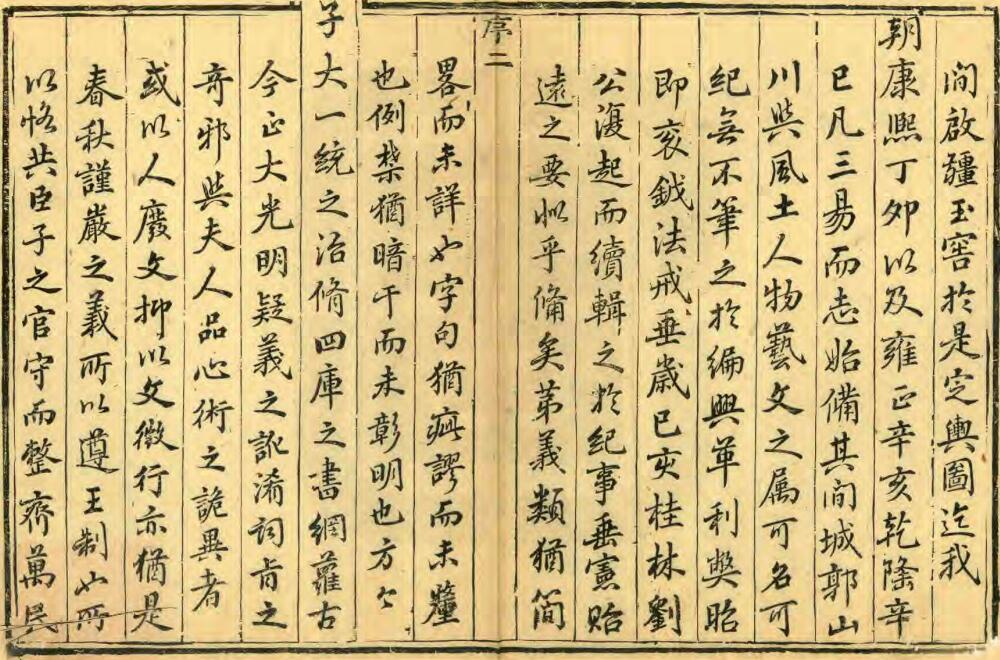 間啟疆玉窖於是定輿圖迄我
朝康熙丁夘以及雍正辛亥乾隆辛
巳凡三易而志始備其间城郭山
川與風土人物藝文之属可名可
紀無不筆之於編興革利獘昭
即衮鉞法戒垂歲已亥桂林劉
公復起而續輯之於紀事垂憲貽
遠之要似乎備矣苐義類猶簡
序二
畧而未詳也字句猶疵謬而未釐
也例槩猶暗干而未彰明也方今
子大一統之治脩四庫之書網蘿古
今正大光明疑義之訛淆詞㫖之
奇邪與夫人品心術之詭異者
或以人廢文抑以文徴行亦猶是
春秋謹嚴之義所以遵王制也所
以恪共臣子之官守而整齊萬民